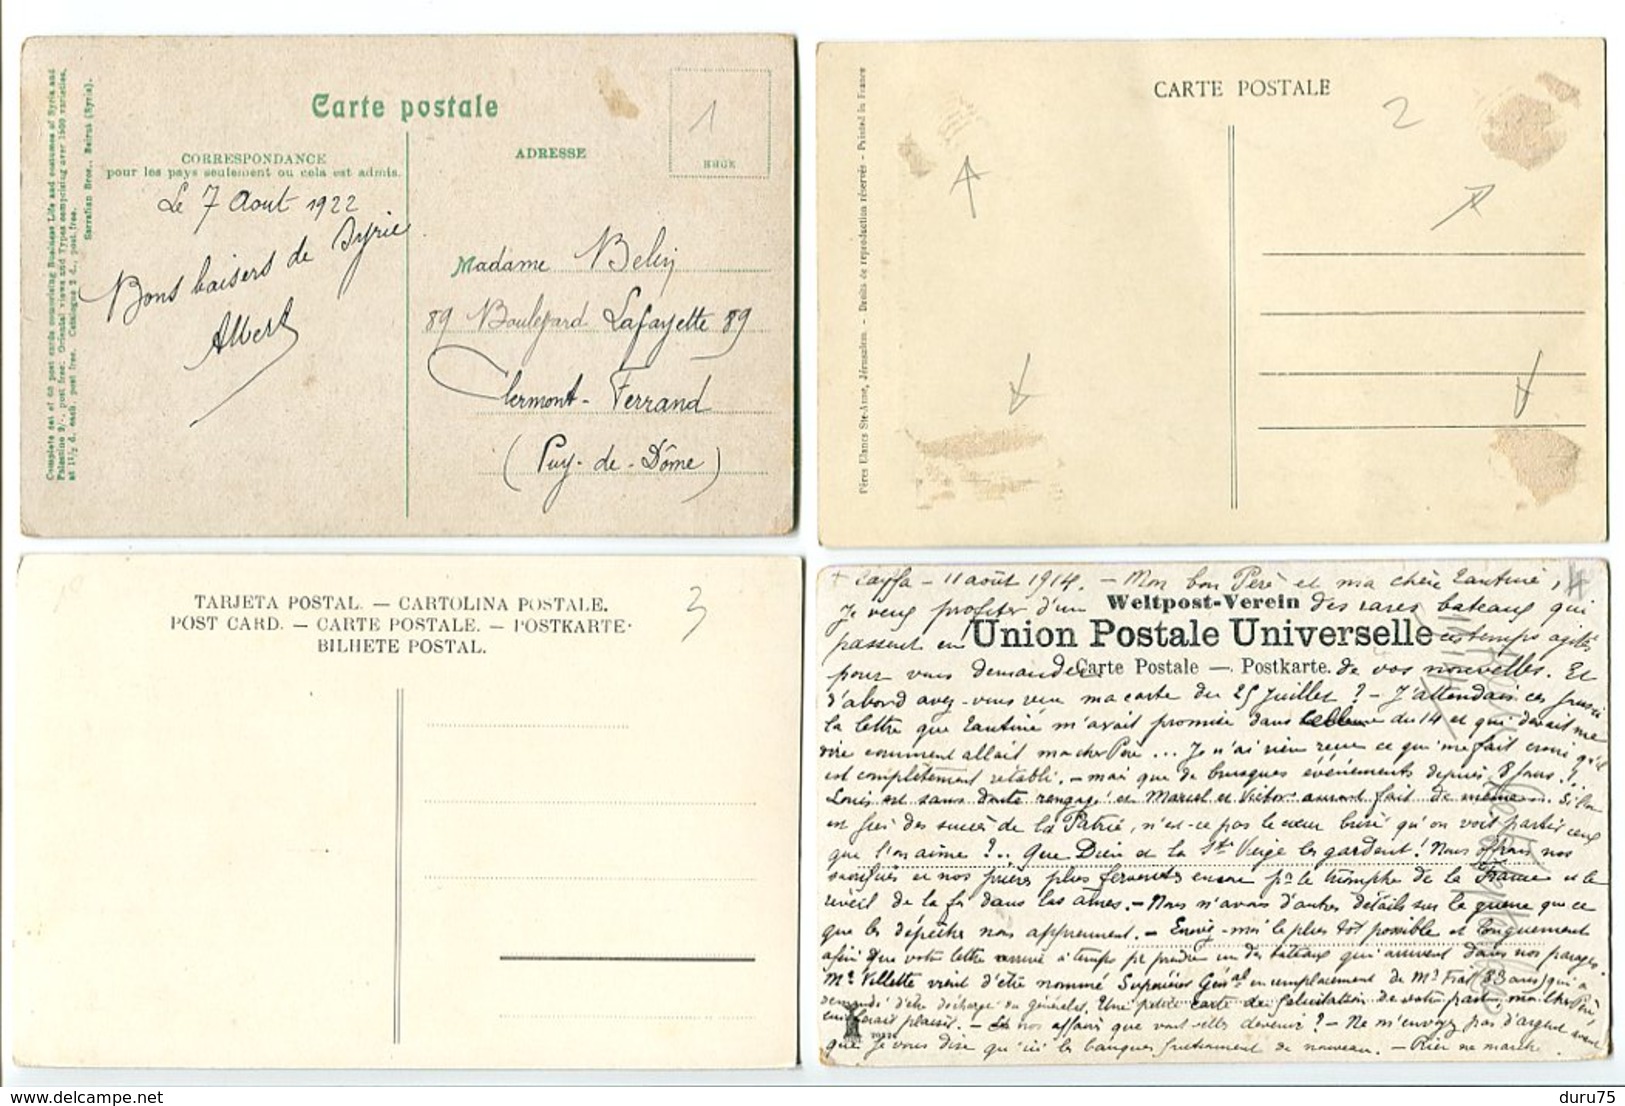 Complete set of 60 post cards comprising Business Life and costumes of Syria and
Palestine 5/-, post free. Oriental views and Types comprising over 1500 varieties,
at 1 1/2 d. each, post free. Catalogue 2 d., post free.
Sarrafian Bros., Beirut (Syria).
Carte postale
CORRESPONDANCE
pour les pays seulement ou cela est admis.
ADRESSE
1
Le 7 Aout 1922
Bons baisers de Syrie
Albert
Madame Belin
89 Boulevard Lafayette 89
Clermont-Ferrand
(Puy-de-Dôme)
Pères Blancs Ste-Anne, Jérusalem. - Droits de reproduction réservés - Printed in France
CARTE POSTALE
2
TARJETA POSTAL. — CARTOLINA POSTALE.
POST CARD. — CARTE POSTALE. — POSTKARTE.
BILHETE POSTAL.
3
Cayfa - 11 août 1914. - Mon bon Père et ma chère Tantine,
Je veux profiter d'un Weltpost-Verein des rares bateaux qui
passent en Union Postale Universelle ces temps agités
pour vous demander Carte Postale — Postkarte. de vos nouvelles. Et
d'abord avez-vous reçu ma carte du 25 Juillet ? - J'attendais ces jours-ci
la lettre que Tantine m'avait promise dans du 14 et qui devait me
dire comment allait mon cher Père ... Je n'ai rien reçu ce qui me fait croire qu'il
est complètement rétabli. - mais que de brusques événements depuis 8 jours !
Louis est sans doute rengagé et Marcel et Victor auront fait de même. Si l'on
est fier des succès de la Patrie, n'est-ce pas le cœur brisé qu'on voit partir ceux
que l'on aime ?.. Que Dieu et la Ste Vierge les gardent ! Nous offrons nos
sacrifices et nos prières plus ferventes encore pr le triomphe de la France et le
réveil de la foi dans les âmes. - Nous n'avons d'autres détails sur la guerre que ce
que les dépêches nous apprennent. - Ecrivez-moi le plus tôt possible et longuement
afin que votre lettre arrive à temps pr prendre un des bateaux qui arrivent dans nos parages.
Mr Villette vient d'être nommé Supérieur Génal en remplacement de Mr Fiat (83 ans) qui a
demandé d'être déchargé du généralat. Une petite carte de félicitation de votre part, mon cher Père
lui ferait plaisir. - Et nos affaires que vont-elles devenir ? - Ne m'envoyez pas d'argent avant
que je vous dise qu'ici les banques fonctionnent de nouveau. - Rien ne marche
duru75